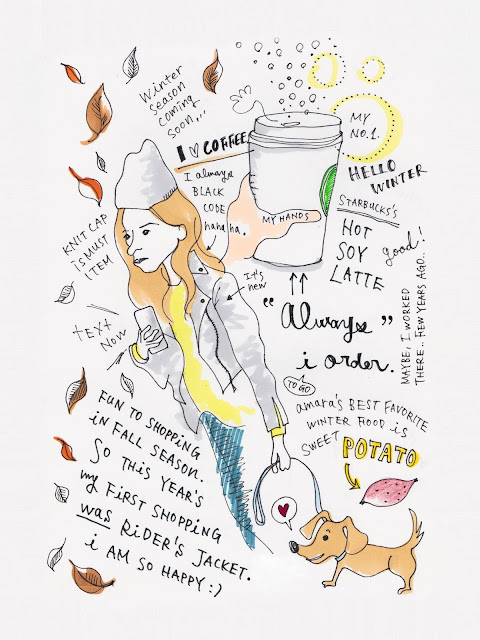 Winter
season
coming
soon...
I ♡ COFFEE
I always
BLACK
CODE
haha, ha.
MY
NO.1.
HELLO
WINTER
STARBUCKS'S
HOT
SOY
LATTE
good!
MY HANDS
KNIT CAP
IS MUST
ITEM
It's
new
"Always"
i order.
TO GO
MAYBE, I WORKED
THERE.. FEW YEARS AGO..
TEXT
NOW
amara's BEST FAVORITE
WINTER FOOD is
SWEET POTATO
FUN TO SHOPPING
iN FALL SEASON.
SO THIS YEAR'S
my FIRST SHOPPING
was RiDER'S JACKET.
i AM SO HAPPY :)